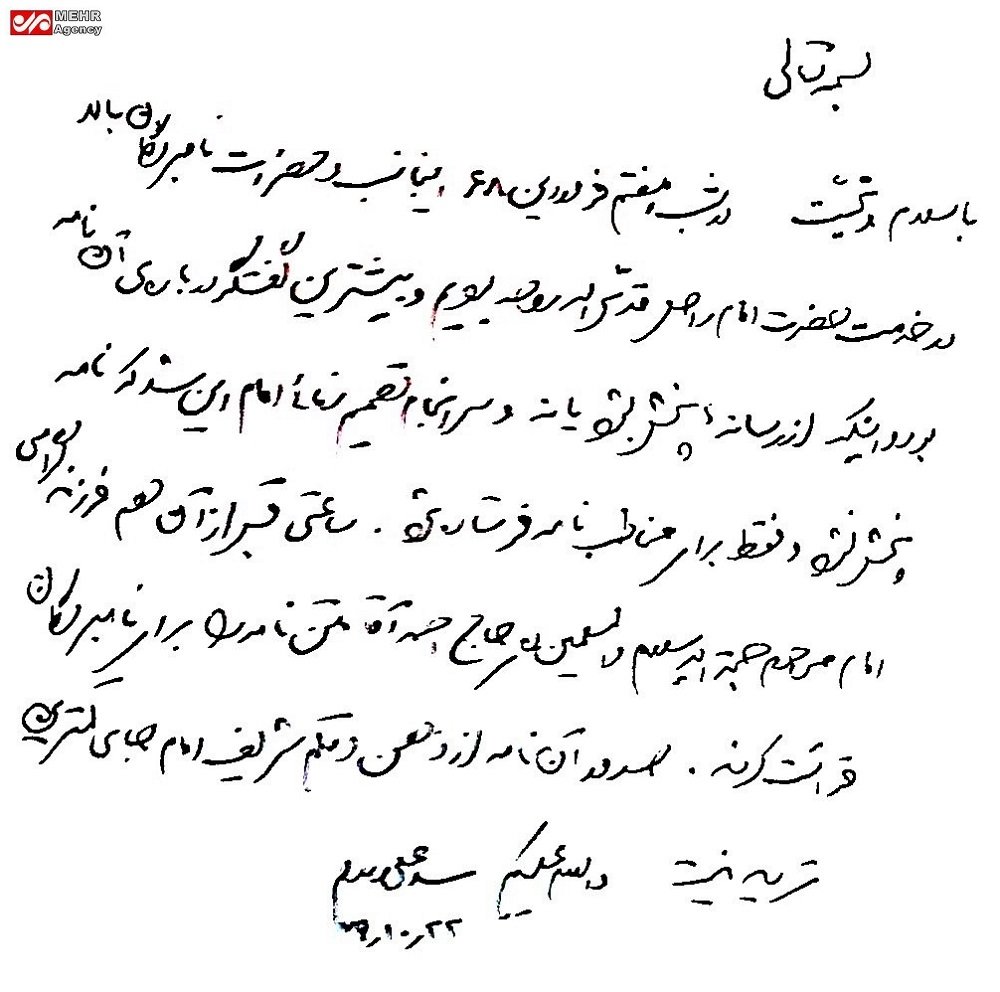 MEHR
Agency
بسمه تعالی
با سلام و تحیّت در شب هفتم فروردین ۶۸ اینجانب و حضرات نامبردگان بالا
در خدمت حضرت امام راحل قدّس الله روحه بودیم و بیشترین گفتگو درباره‌ی آن نامه
بود و اینکه از رسانه‌ها پخش بشود یا نه و سرانجام تصمیم نهائی امام این شد که نامه
پخش نشود و فقط برای مخاطب نامه فرستاده شود. ساعتی قبل از آن هم فرزند گرامی
امام مرحوم حجة الاسلام والمسلمین حاج احمد آقا متن نامه را برای نامبردگان
قرائت کردند. صدور آن نامه از ذهن و قلم شریف امام جای کمترین
تردید نیست والسلام علیکم
سید علی
۷۹٫۱۰٫۲۲